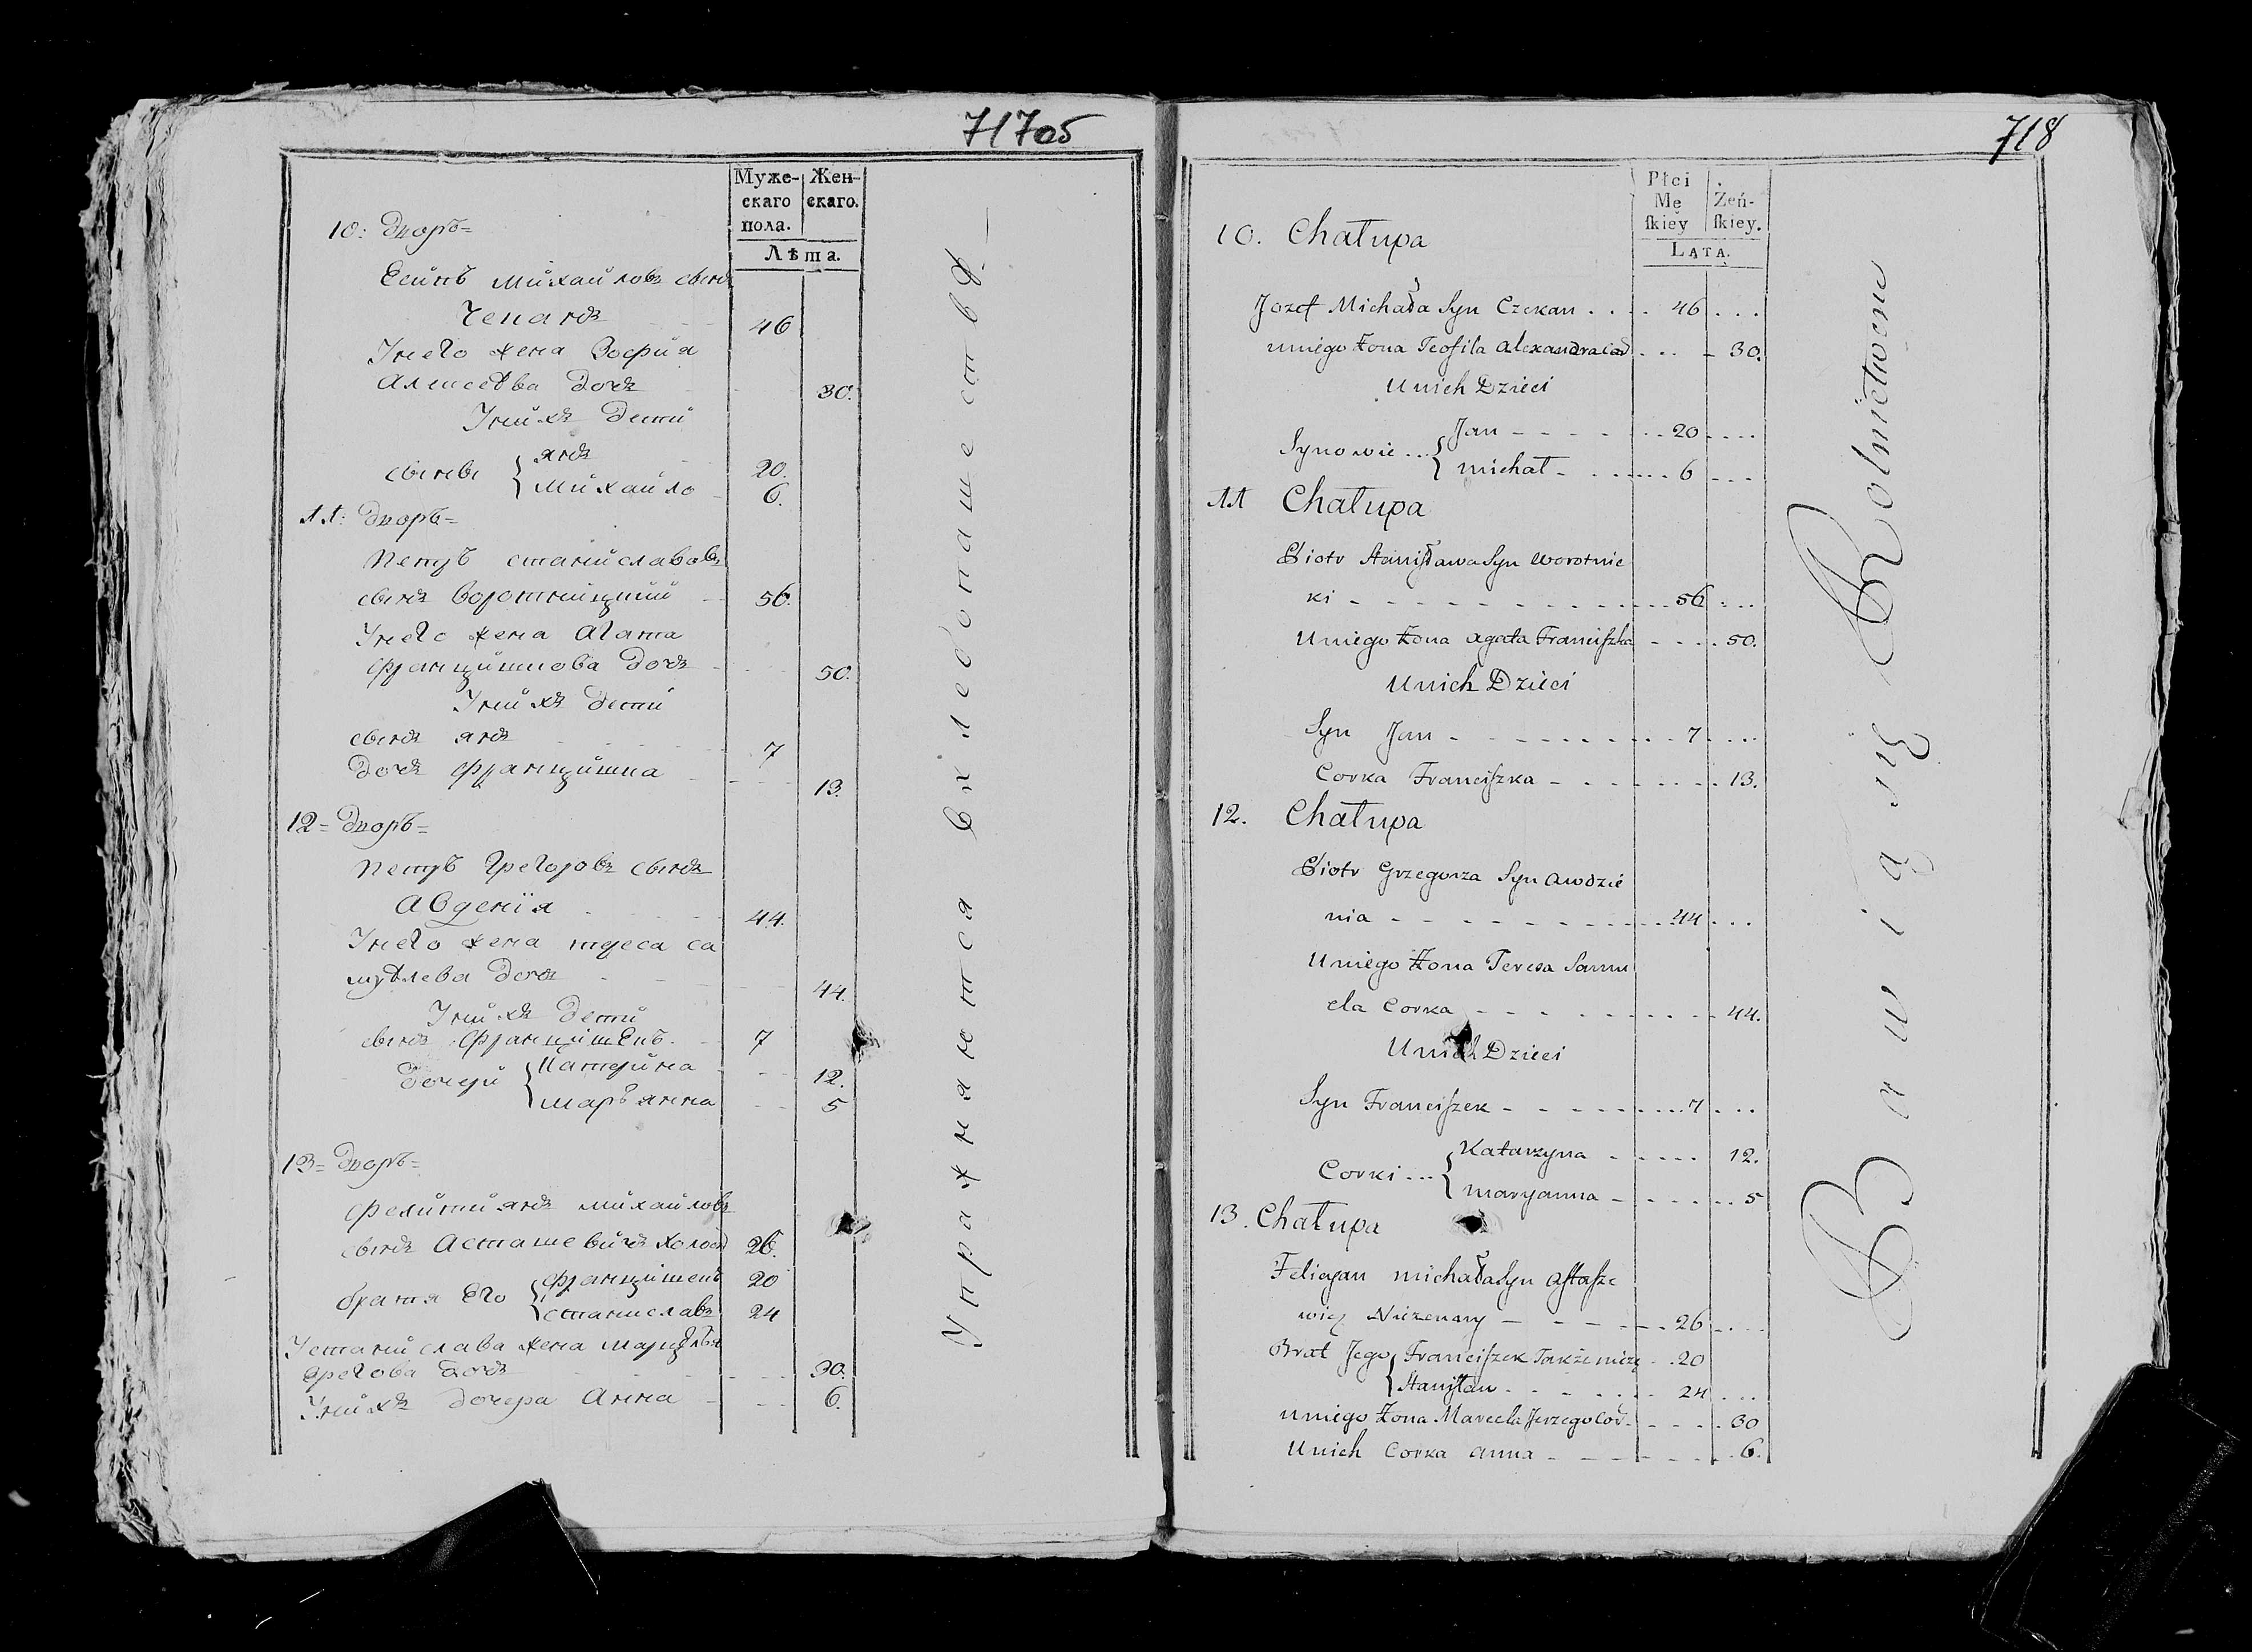 717об
Муже-
скаго
пола.
Жен-
скаго.
Лѣта.
10: Дворъ=
Есипъ Михайловъ сынъ
Чеканъ 46
У него жена Зофѣя
Алексеева дочь 30.
У нихъ дети
сыновья { янъ 20.
Михайло 6.
11: Дворъ=
Петръ станиславовъ
сынъ воротницкий 56.
У него жена Агата
францишкова дочь 50.
У нихъ дети
сынъ янъ 7
дочь францишка 13.
12= Дворъ=
Петръ Грегоровъ сынъ
Авденія 44.
У него жена тереса са
муелева дочь 44.
У нихъ дети
сынъ францишекъ. 7
дочери { Катерина 12.
марьянна 5
13= Дворъ=
фелициянъ михайловъ
сынъ Асташевичъ холост 26.
братья его { францишекъ 20
станиславъ 24
У станислава жена марцелля
Ерегова дочь 30.
У нихъ дочера Анна 6.
Упражняются въ хлебопашествѣ.
718
Płci
Mę
ſkiey
Żeń-
ſkiey.
LATA.
10. Chałupa
Jozef Michała Syn Czekan 46
u niego Żona Teofila Alexandra Cor 30.
U nich Dzieci
Synowie { Jan 20
Michał 6
11 Chałupa
Piotr Staniſława Syn Worotnic
ki 56
U niego Żona Agata Franciſzka 50.
U nich Dzieci
Syn Jan 7
Corka Franciſzka 13.
12. Chałupa
Piotr Grzegorza Syn Awdzie
nia 44
U niego Żona Teresa Samu
ela Corka 44.
U nich Dzieci
Syn Franciſzek 7
Corki { Katarzyna 12.
Maryanna 5
13. Chałupa
Felicyan Michała Syn Aſtaſze
wicz Nieżenny 26
Brat Jego { Franciſzek Także nieże 20
Staniſław 24
u niego Żona Marcela Jerzego Cor 30
U nich Corka Anna 6.
Bawią się Rolnictwem